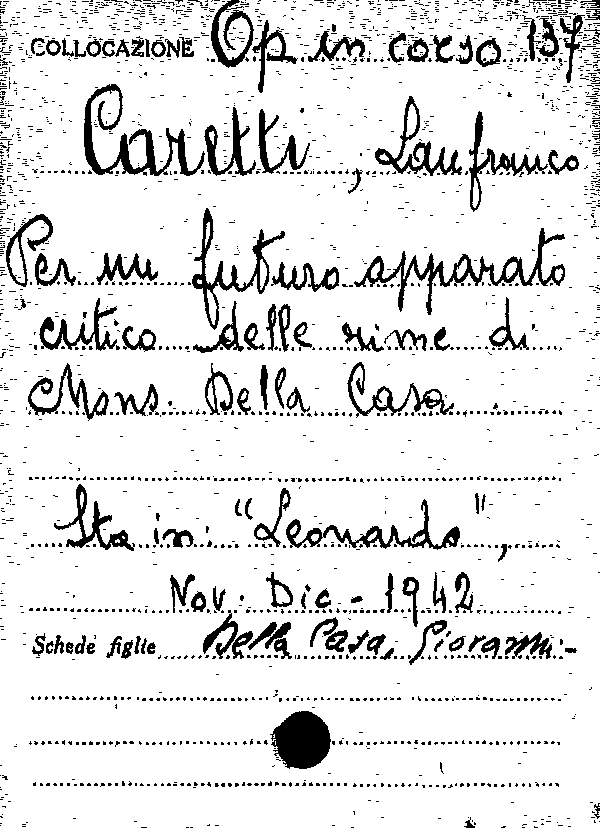 COLLOCAZIONE Op in corso 137
Caretti, Lanfranco
Per un futuro apparato
critico delle rime di
Mons. Della Casa.
Sta in: "Leonardo",
Nov. Dic - 1942
Schede figlie Della Casa, Giovanni.-